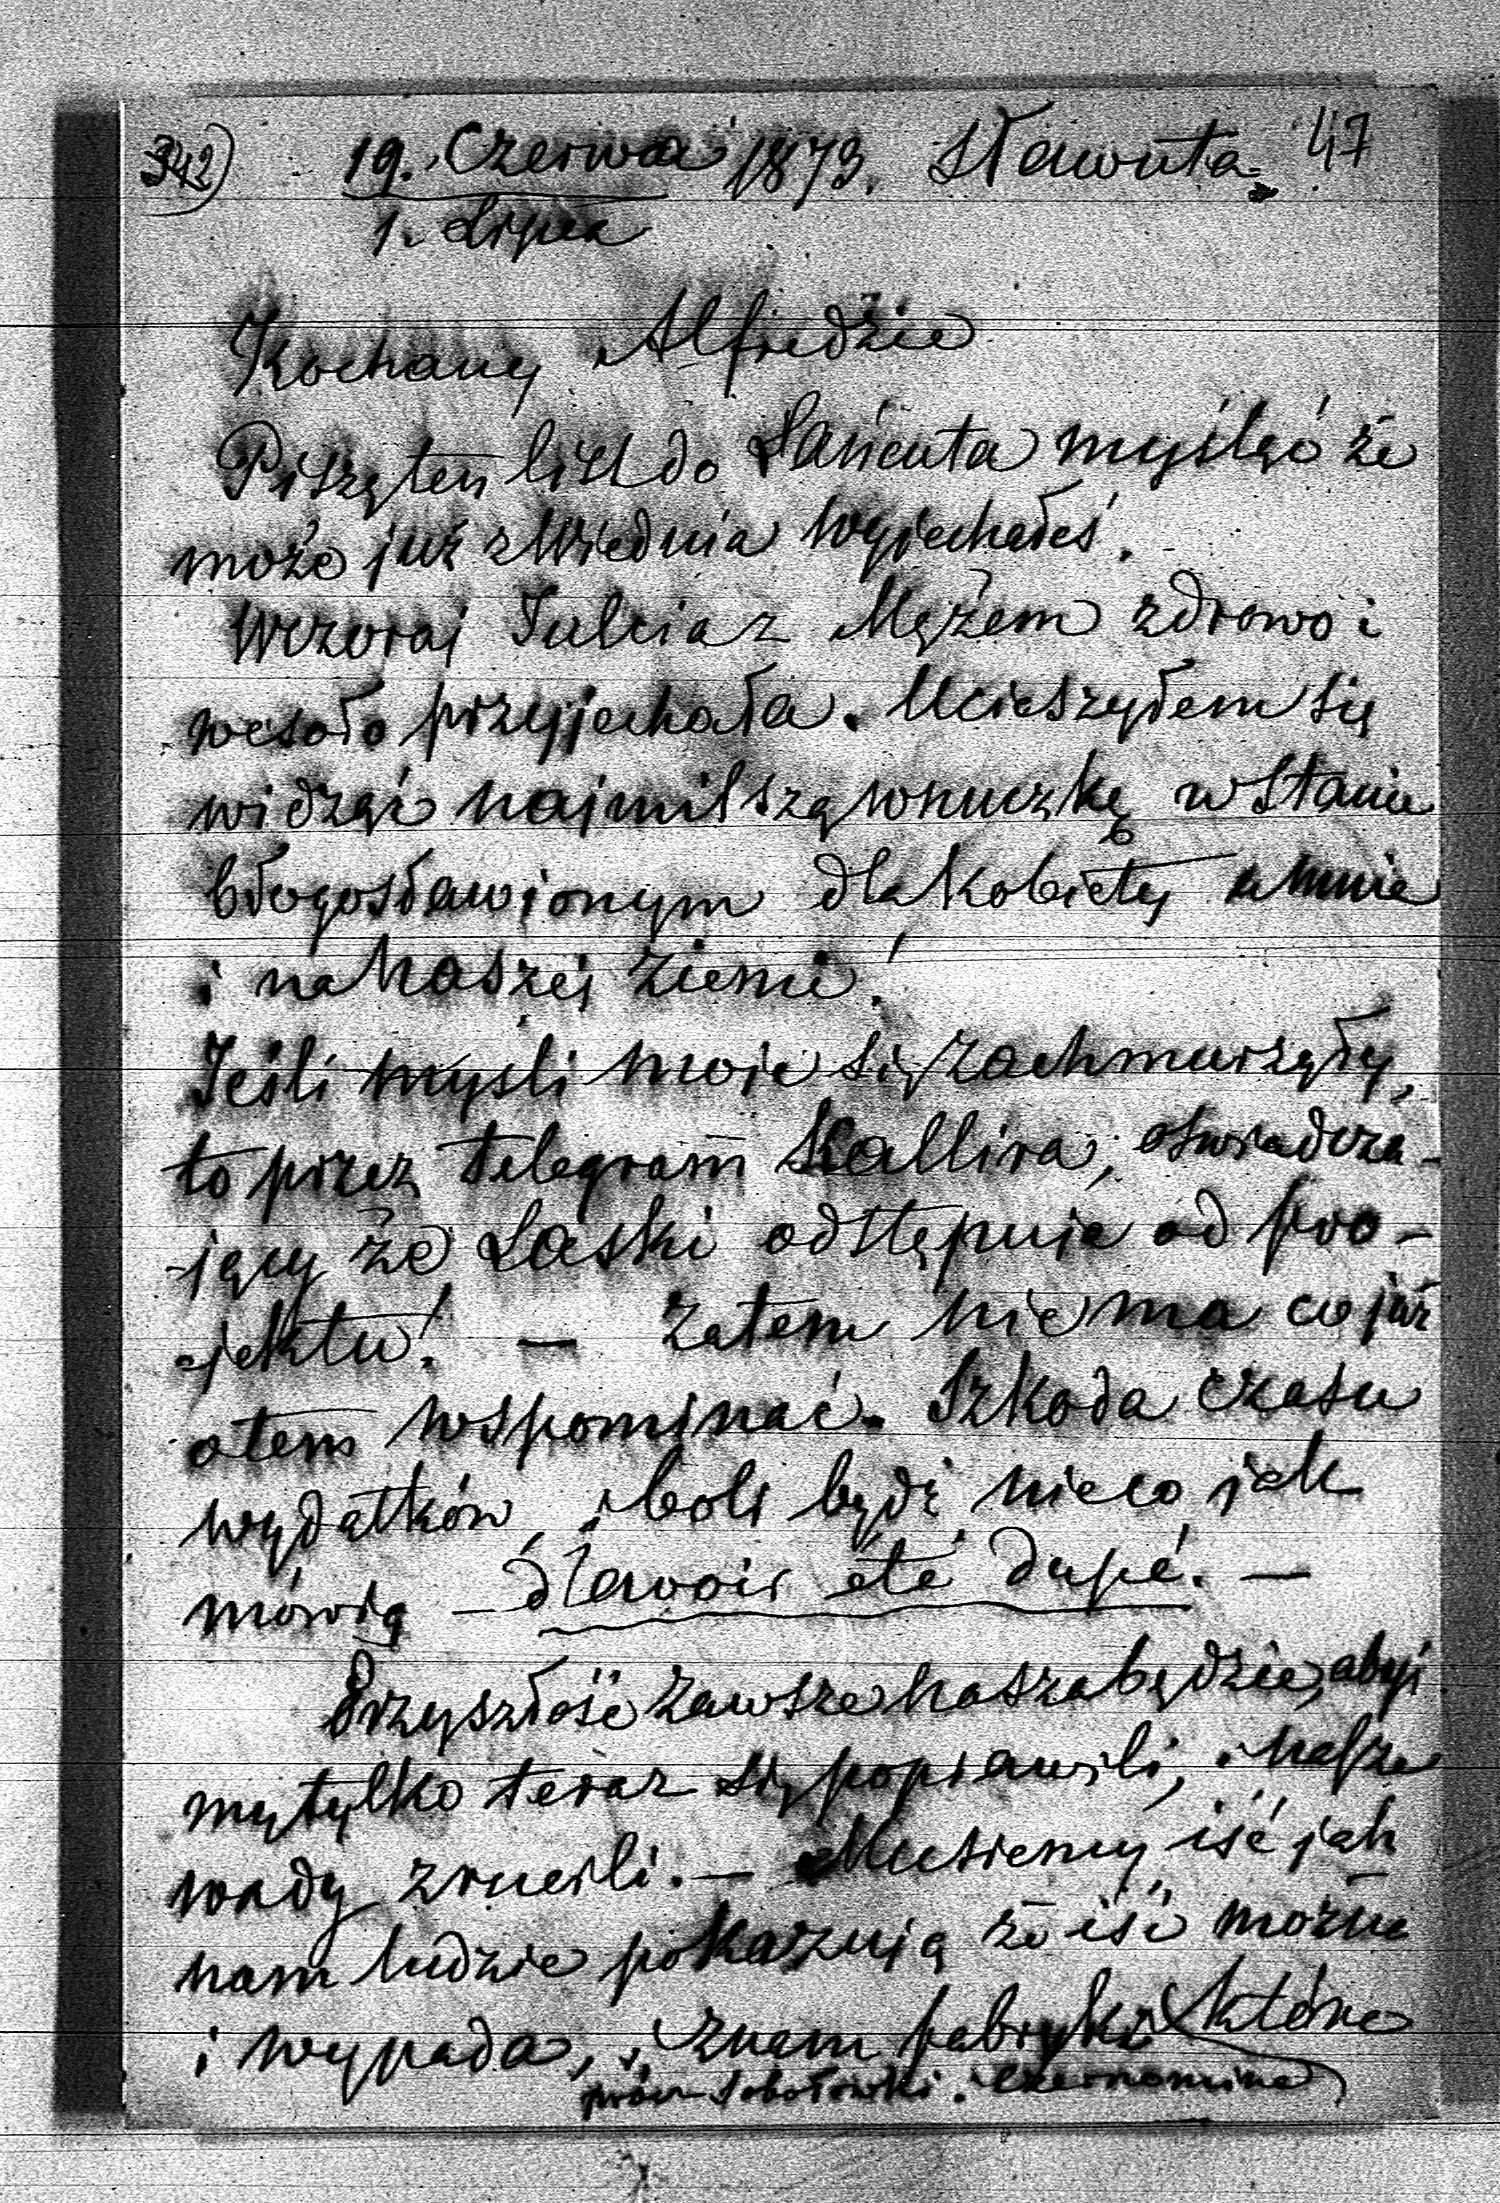 342) 19. Czerwca 1873. Sławuta. 47
1. Lipca
Kochany Alfredzie
Piszę ten list do Łańcuta myśląc że
może już z Wiednia wyjechałeś.
Wczoraj Julcia z Mężem zdrowo i
wesoło przyjechała. Ucieszyłem się
widząc najmilszą wnuczkę w stanie
błogosławionym dla kobiety w Niebie
i na naszej ziemi!
Jeśli myśli moje się zachmurzyły,
to przez telegram Kallira, oświadcza-
jący że Laski odstępuje od pro-
jektu! — Zatem nie ma co już
o tem wspominać. Szkoda czasu
wydatków, i boli być nieco jak
mówią — d'avoir été dupé. —
Przyszłość zawsze nasza będzie, abyś
my tylko teraz się poprawili, i nasze
wady zrucili. — Musiemy iść jak
nam ludzie pokazują że iść można
i wypada, i znam fabryki które
prócz Sobołówki i Czernomina